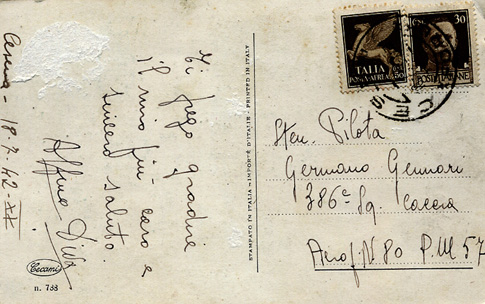 Cesena - 18-7-42-XX
Ti prego gradire
il mio più caro e
sincero saluto.
Cecami
n. 733
STAMPATO IN ITALIA - IMPORTÉ D'ITALIE - PRINTED IN ITALY
ITALIA
POSTA AEREA
30
POSTE ITALIANE
Sten. Pilota
Germano Gennari
386ª Sq. Caccia
Aerof. N. 80 P.M 57